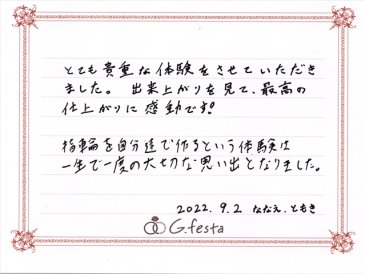 とても貴重な体験をさせていただき
ました。出来上がりを見て、最高の
仕上がりに感動です!
指輪を自分達で作るという体験は
一生で一度の大切な思い出となりました。
2022. 9. 2 ななえ、ともき
G.festa